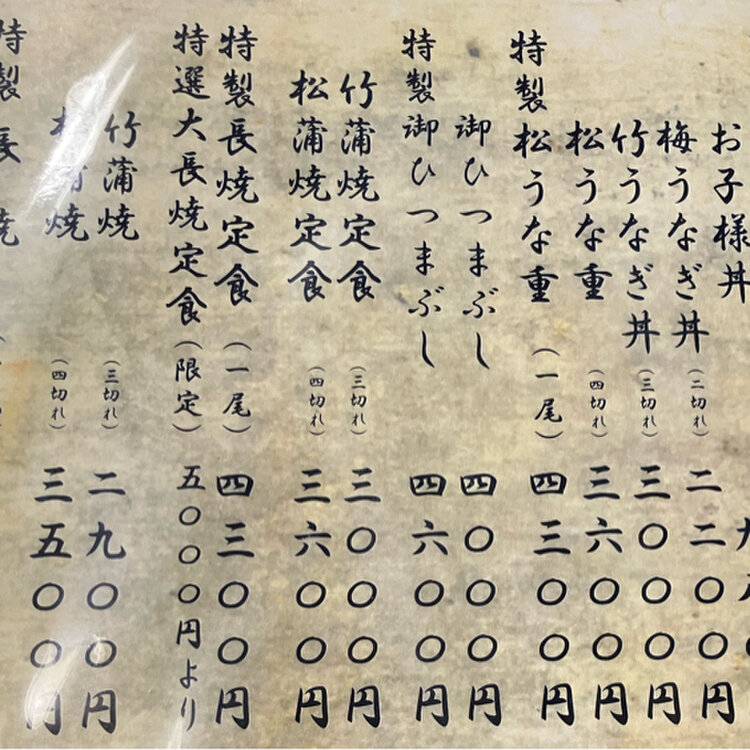 お子様丼
梅うなぎ丼（二切れ）二二〇〇円
竹うなぎ丼（三切れ）三〇〇〇円
松うな重（四切れ）三六〇〇円
特製松うな重（一尾）四三〇〇円
御ひつまぶし四〇〇〇円
特製御ひつまぶし四六〇〇円
竹蒲焼定食（三切れ）三〇〇〇円
松蒲焼定食（四切れ）三六〇〇円
特製長焼定食（一尾）四三〇〇円
特選大長焼定食（限定）五〇〇〇円より
竹蒲焼（三切れ）二九〇〇円
松蒲焼（四切れ）三五〇〇円
特製長焼